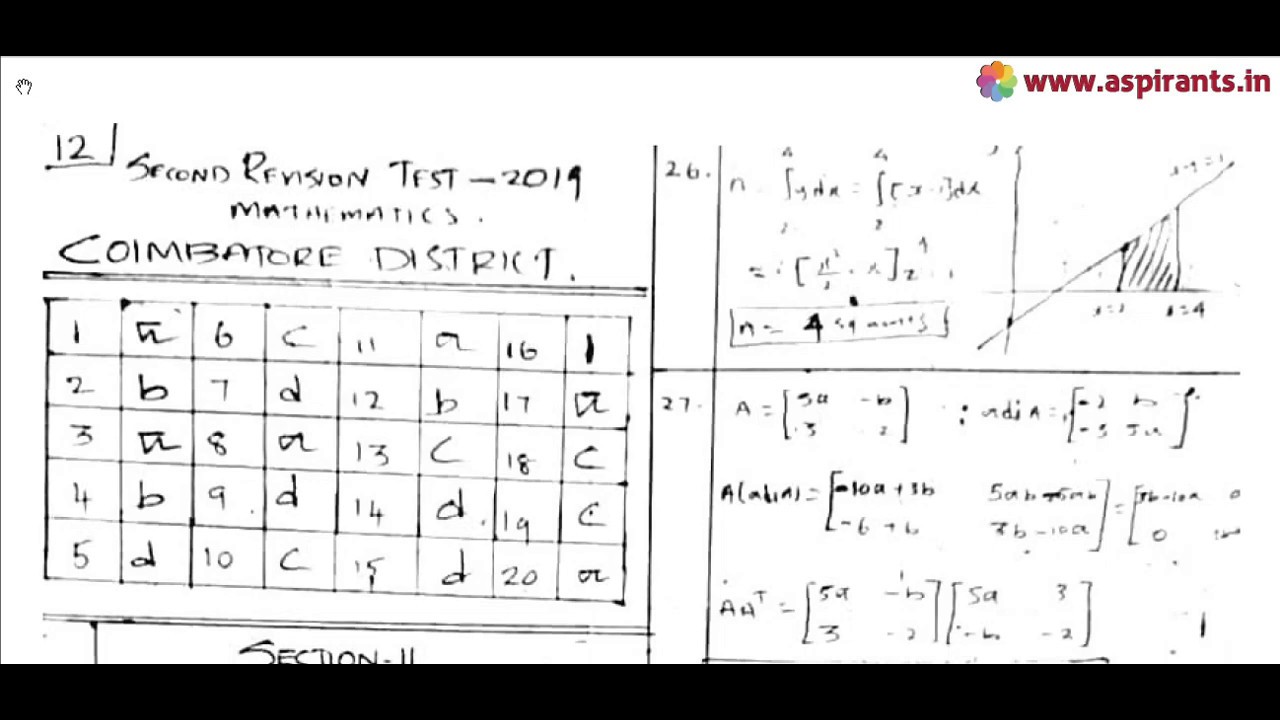 www.aspirants.in
12
SECOND REVISION TEST - 2019
MATHEMATICS.
COIMBATORE DISTRICT.
1 a 6 c 11 a 16
2 b 7 d 12 b 17 a
3 a 8 a 13 c 18 c
4 b 9 d 14 d 19 c
5 d 10 c 15 d 20 a
SECTION-II
26.
∫ydx = ∫[x-1]dx
4 sq units
x=4
27. A = [5a -b
3 2]
A(adjA) = [-10a+3b
-6+6 3b-10a] = [3b-10a 0
0
AA^T = [5a -b
3 -2] [5a 3
-b -2]